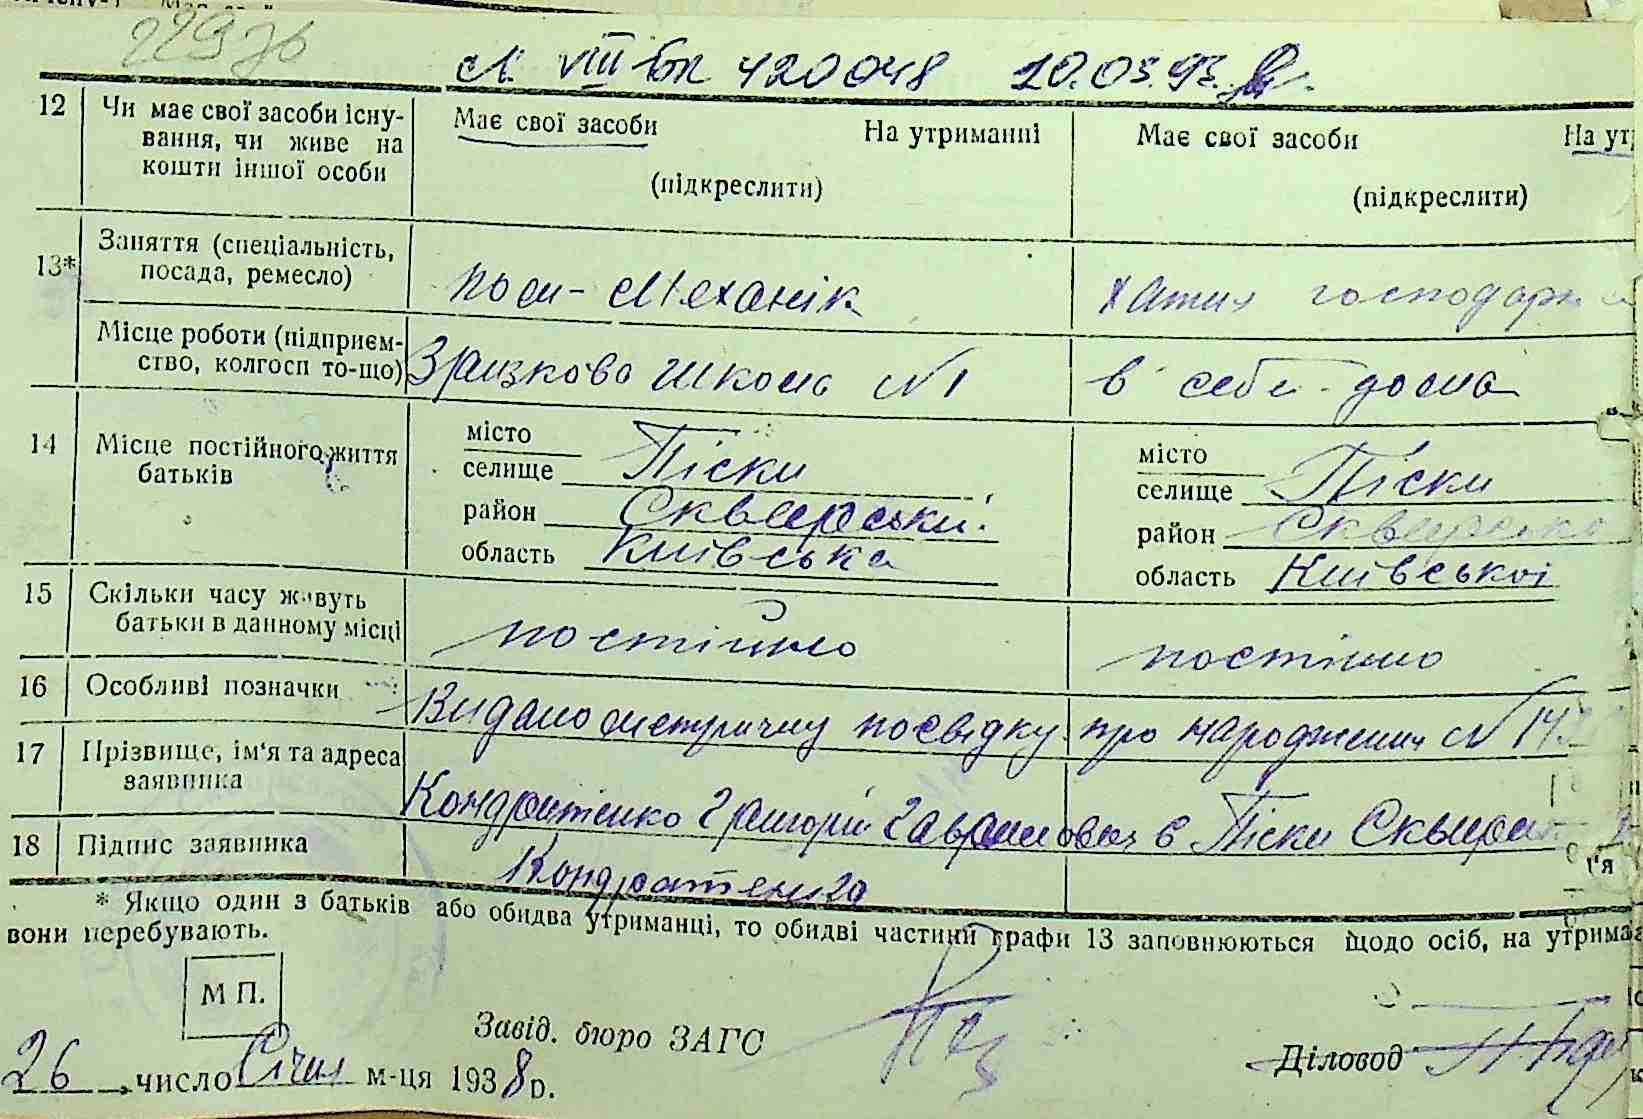 22976
№ VIII бп 420048 20.03.93.
12 Чи має свої засоби існу-
вання, чи живе на
кошти іншої особи
Має свої засоби На утриманні
(підкреслити)
Має свої засоби На ут
(підкреслити)
13* Заняття (спеціальність,
посада, ремесло)
пом- механік
хатня господарка
Місце роботи (підприєм-
ство, колгосп то-що)
Зразкова школа №1
в себе дома
14 Місце постійного життя
батьків
місто
селище Піски
район Сквирський.
область Київська
місто
селище Піски
район Сквирсько
область Київської
15 Скільки часу живуть
батьки в данному місці
постійно
постійно
16 Особливі позначки
Видано метричну посвідку про народження № 14
17 Прізвище, ім'я та адреса
заявника
Кондратенко Григорій с Піски Сквира
18 Підпис заявника
Кондратенко
* Якщо один з батьків або обидва утриманці, то обидві частини графи 13 заповнюються щодо осіб, на утрима
вони перебувають.
М П.
Завід. бюро ЗАГС
Діловод
26 число Січня м-ця 1938 р.